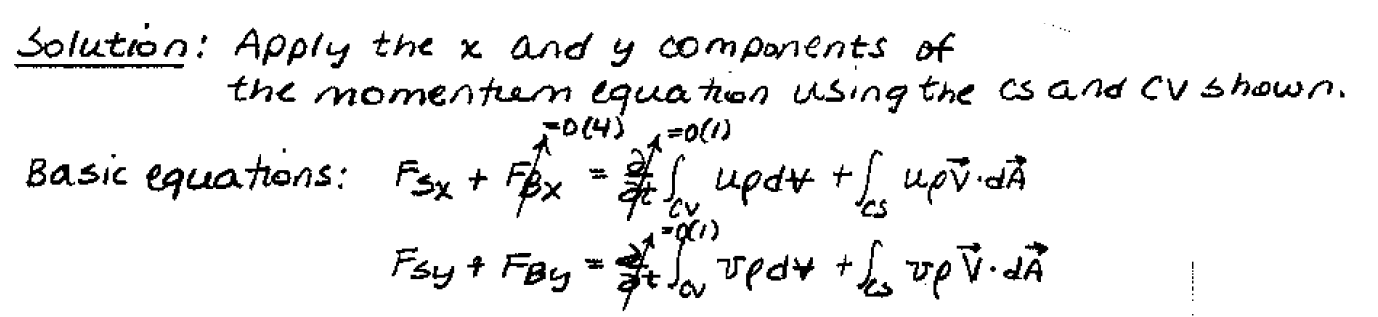 Solution: Apply the x and y components of
the momentum equation using the CS and CV shown.
=0(4) =0(1)
Basic equations: F_{Sx} + F_{Bx} = ∂/∂t ∫_{CV} uρd∀ + ∫_{CS} uρV⃗·dA⃗
=0(1)
F_{Sy} + F_{By} = ∂/∂t ∫_{CV} vρd∀ + ∫_{CS} vρV⃗·dA⃗